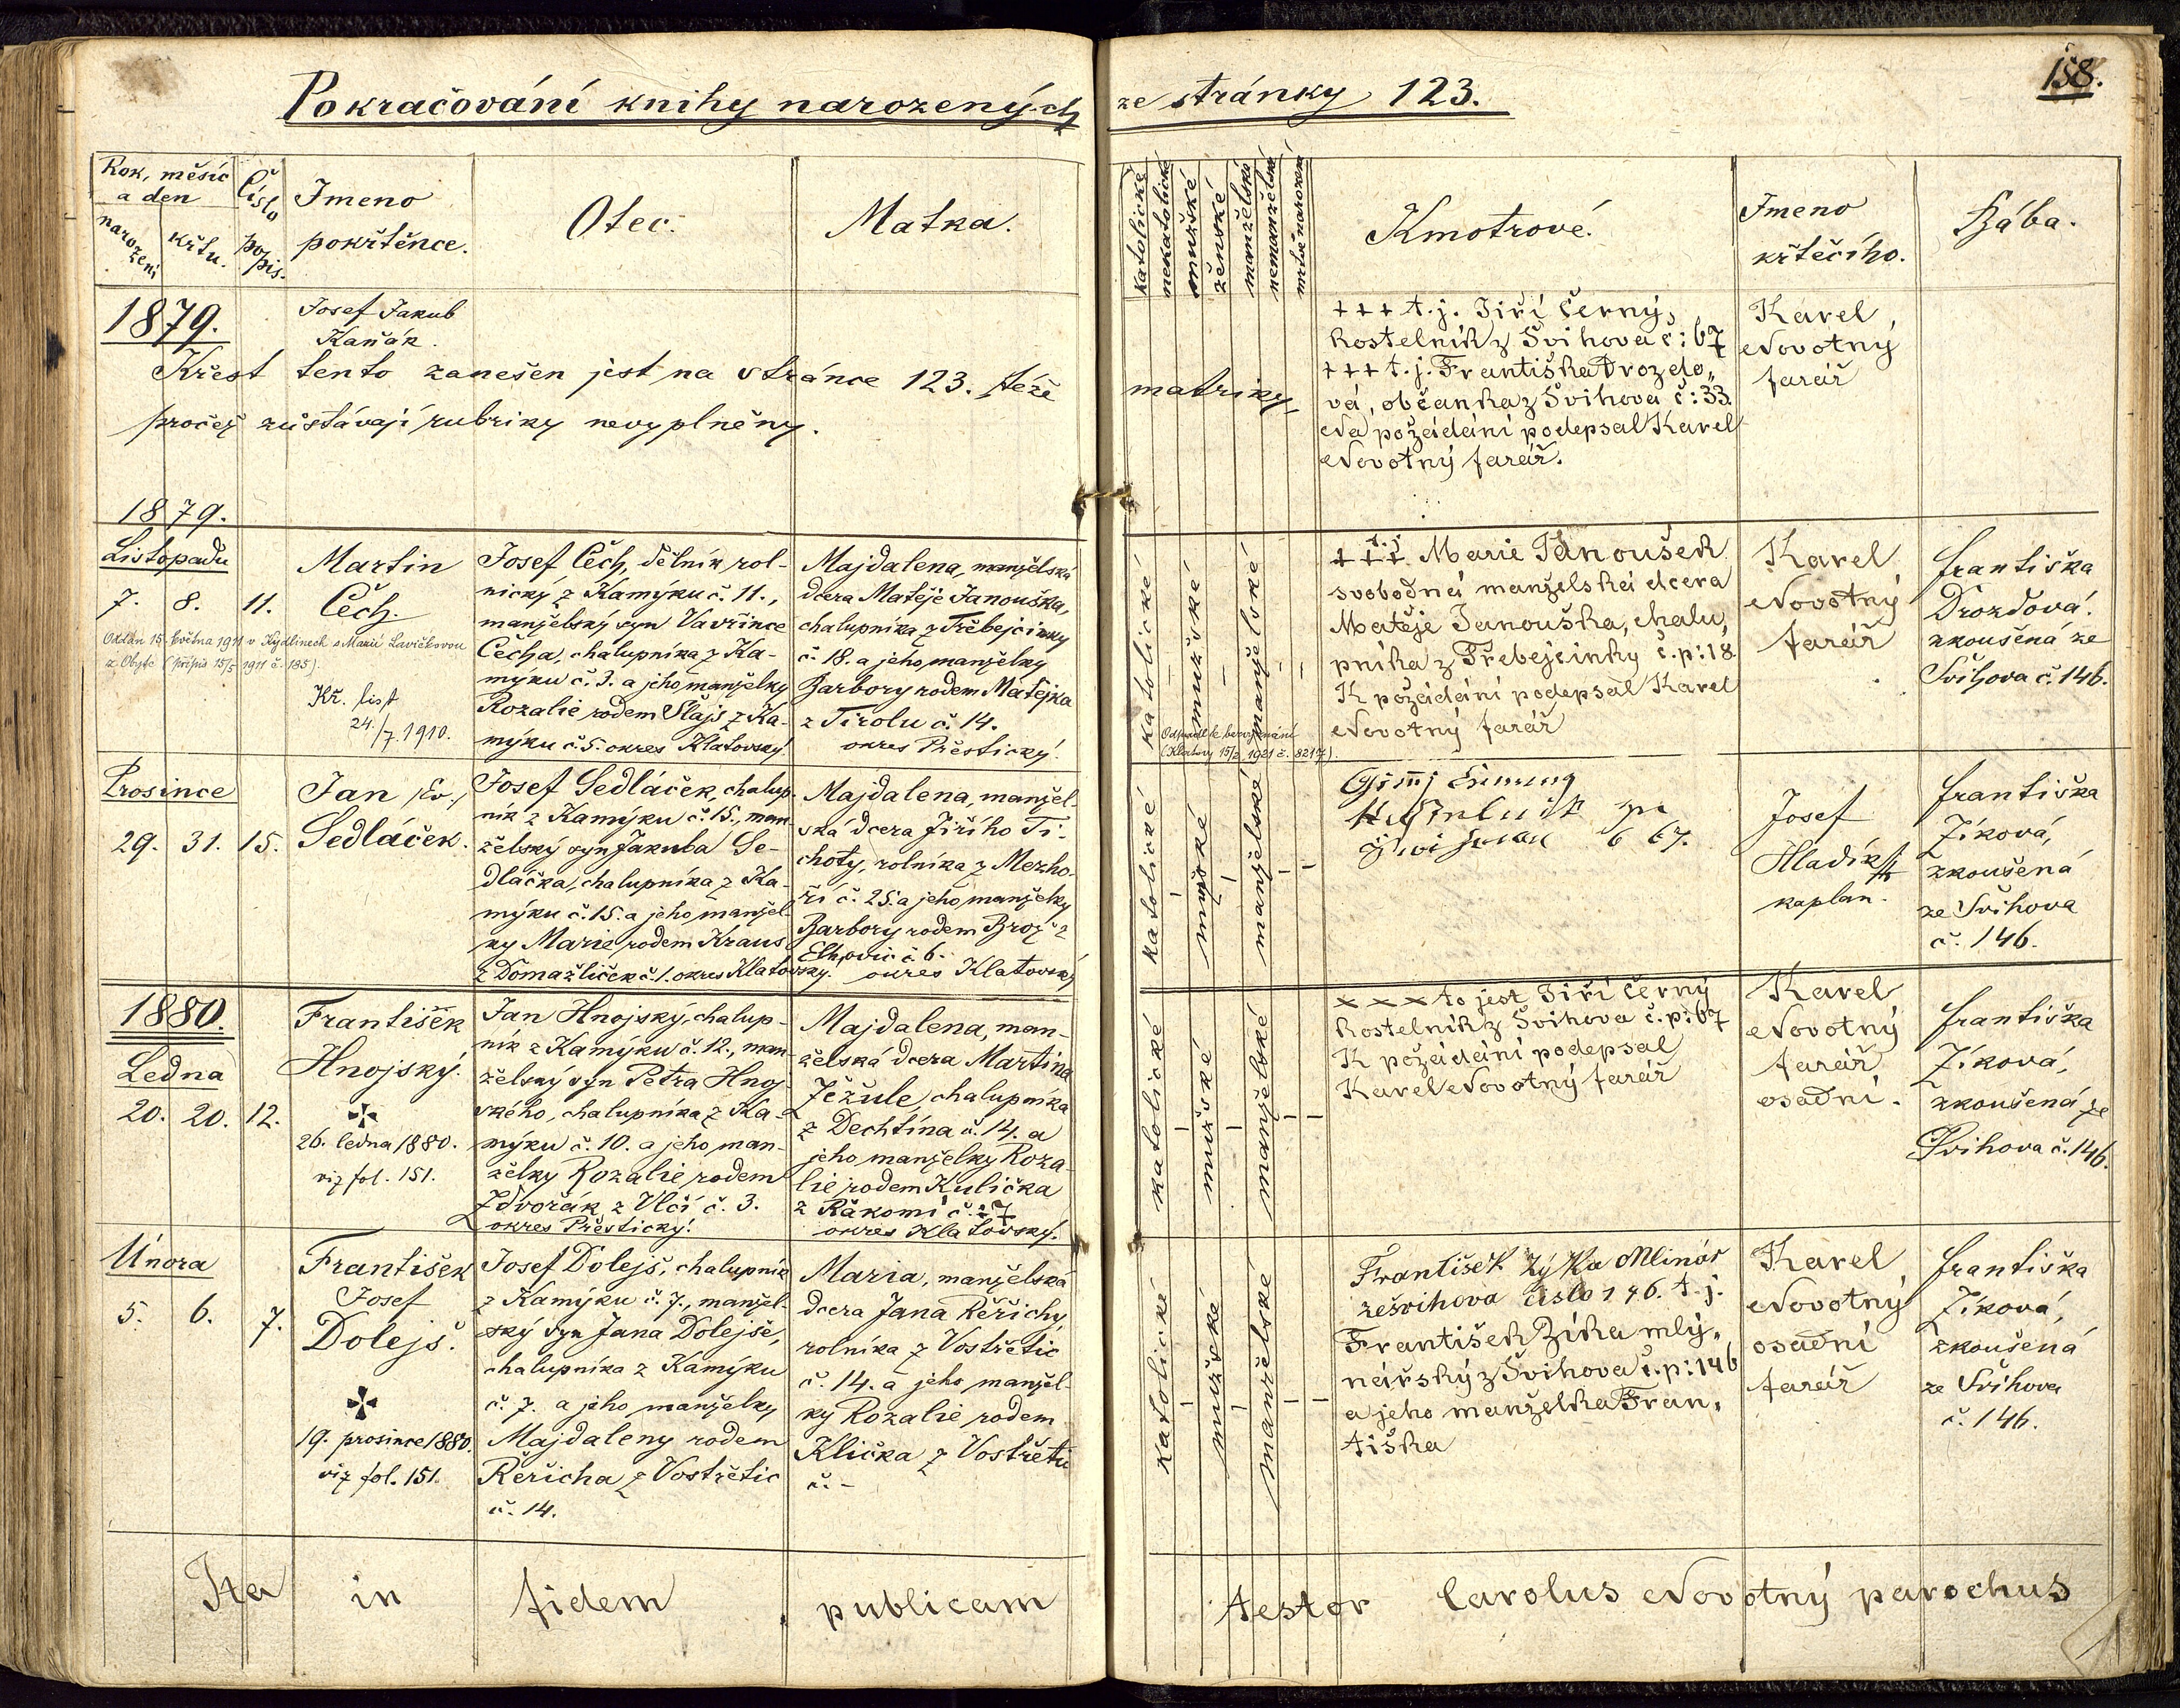 158.
Pokračování knihy narozených ze stránky 123.
Rok, měsíc
a den
narození
křtu.
Číslo
popis.
Jmeno
pokřtěnce.
Otec.
Matka.
katolické
nekatolické
mužské
ženské
manželské
nemanželské
mrtvě narozené
Kmotrové.
Jmeno
křtěčího.
Bába.
1879.
Josef Jakub
Kaňák.
Křest tento zanešen jest na stránce 123. téže matriky,
pročež zůstávají rubriky nevyplněny.
+++ t.j. Jiří Černý,
kostelník z Švihova č: 67
+++ t.j. Františka Drozdo„
vá, občanka z Švihova č: 33.
Na požádání podepsal Karel
Novotný farář.
Karel
Novotný
farář
1879.
Listopadu
7. 8. 11.
Martin
Čech.
Oddán 15. května 1911 v Kydlinech s Marií Lavičkovou
z Obytc (přípis 15/5 1911 č. 185).
Kř. list
24./7. 1910.
Josef Čech, dělník rol-
nický z Kamýku č. 11.,
manželský syn Vavřince
Čecha, chalupníka z Ka-
mýku č. 3. a jeho manželky
Rozalie rodem Slajs z Ka-
mýku č. 5. okres Klatovský.
Majdalena, manželská
dcera Matěje Janouška,
chalupníka z Třebejcinky
č. 18. a jeho manželky
Barbory rodem Matejka
z Tirolu č. 14.
okres Přestický.
katolické
mužské
manželské
Odpadl k bezvyznání
(Klatovy 15/2 1921 č. 8217).
+++ t.j. Marie Janoušek
svobodná manželská dcera
Matěje Janouška, chalu„
pníka z Třebejcinky č.p: 18.
K požádání podepsal Karel
Novotný farář
Karel
Novotný
farář
Františka
Drozdová.
zkoušená ze
Švihova č. 146.
Prosince
29. 31. 15.
Jan Ev.
Sedláček.
Josef Sedláček, chalup-
ník z Kamýku č. 15., man-
želský syn Jakuba Se-
dláčka, chalupníka z Ka-
mýku č. 15. a jeho manžel-
ky Marie, rodem Kraus
z Domažliček č. 1. okres Klatovský.
Majdalena, manžel-
ská dcera Jiřího Ti-
choty, rolníka z Mezho-
ří č. 25. a jeho manželky
Barbory rodem Brož z
Elhovic č 6.
okres Klatovský
katolické
mužské
manželské
67.
Josef
Hladík
kaplan.
Františka
Zíková,
zkoušená
ze Švihova
č. 146.
1880.
Ledna
20. 20. 12.
František
Hnojský.
26. ledna 1880.
viz fol. 151.
Jan Hnojský, chalup-
ník z Kamýku č. 12., man-
želský syn Petra Hnoj-
ského, chalupníka z Ka-
mýku č. 10. a jeho man-
želky Rozalie rodem
Zdvořák z Vlčí č. 3.
okres Přestický.
Majdalena, man-
želská dcera Martina
Ježule, chalupníka
z Dechtína č. 14. a
jeho manželky Roza-
lie rodem Kulička
z Rákomí č. 27
okres Klatovský.
katolické
mužské
manželské
××× to jest Jiří Černý
kostelník z Švihova č.p: 67
K požádání podepsal
Karel Novotný farář
Karel
Novotný
farář
osadní.
Františka
Zíková,
zkoušená ze
Švihova č. 146.
Února
5. 6. 7.
František
Josef
Dolejš.
19. prosince 1880.
viz fol. 151.
Josef Dolejš, chalupník
z Kamýku č. 7., manžel-
ský syn Jana Dolejše,
chalupníka z Kamýku
č. 7. a jeho manželky
Majdaleny rodem
Řeřicha z Vostřetic
č. 14.
Maria, manželská
dcera Jana Řeřichy,
rolníka z Vostřetic
č. 14. a jeho manžel-
ky Rozalie rodem
Klička z Vostřetic
č. -
katolické
mužské
manželské
František Zýka Mlinář
zešvihova číslo 146. t.j.
František Zíka mlý„
nářský z Švihova č.p: 146
a jeho manželka Fran„
tiška
Karel
Novotný
osadní
farář
Františka
Zíková,
zkoušená
ze Švihova
č. 146.
Ita in fidem publicam testor Carolus Novotný parochus